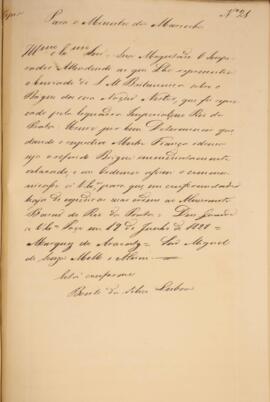 Nº 28
Para o Ministro da Marinha
Illmo e Exmo Snr = Sua Magestade O Impe
rador Attendendo ao que Lhe representou
o Enviado de S. M. Britannica sobre o
Brigue da sua Nação
pela Esquadra Imperial no Rio da
Prata, Houve por bem Determinar que
dando o respectivo Mestre Fiança idonea
seja o referido Brigue immediatamente
relaxado, e as ordens assim o commu
nico a V. Exa, para que em conformidade
haja de expedir as suas ordens ao Almirante
Barão do Rio da Prata = Deos Guarde
a V. Exa Paço em 19 de Junho de 1828 =
Marquez de Aracaty = Snr Miguel
de Souza Mello e Alvim
Está conforme
Bento da Silva Lisboa